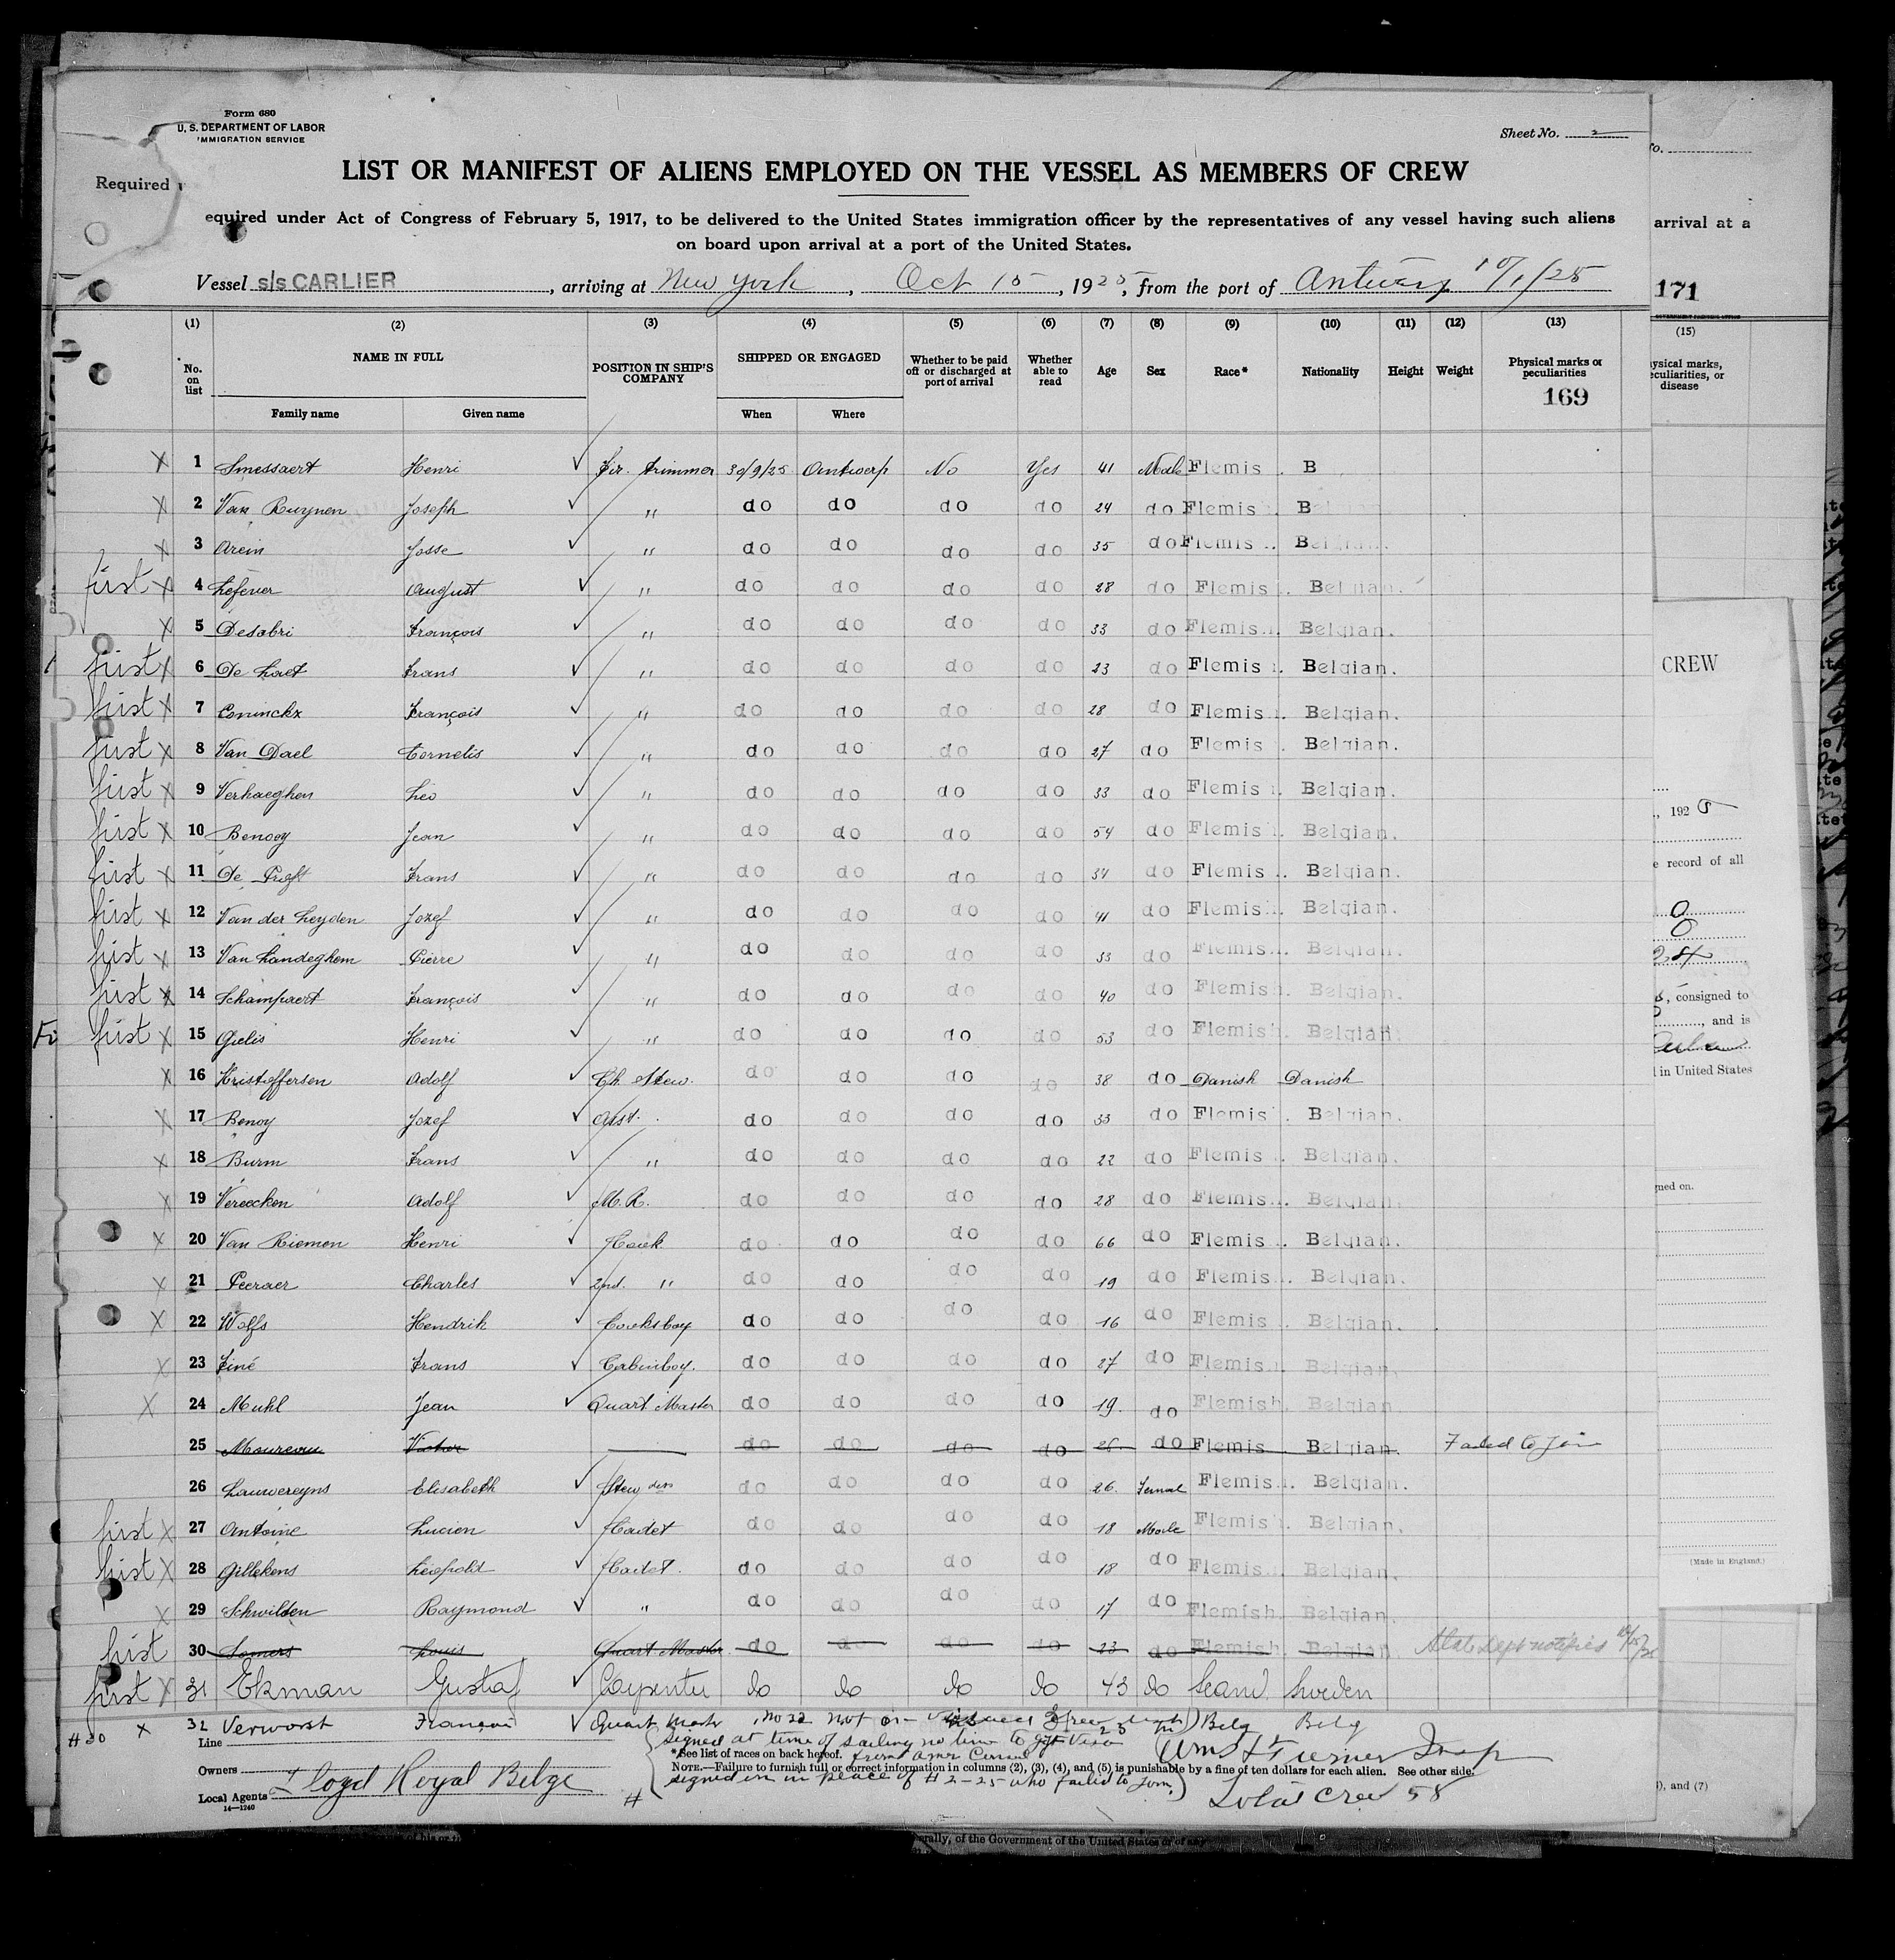 Form 680
U. S. DEPARTMENT OF LABOR
IMMIGRATION SERVICE
Sheet No. 2
LIST OR MANIFEST OF ALIENS EMPLOYED ON THE VESSEL AS MEMBERS OF CREW
Required
equired under Act of Congress of February 5, 1917, to be delivered to the United States immigration officer by the representatives of any vessel having such aliens
on board upon arrival at a port of the United States.
arrival at a
Vessel s/s CARLIER, arriving at New York, Oct 15, 1925, from the port of Antwerp 10/1/25
171
(1) (2) (3) (4) (5) (6) (7) (8) (9) (10) (11) (12) (13)
(15)
No. on list NAME IN FULL POSITION IN SHIP'S COMPANY SHIPPED OR ENGAGED Whether to be paid off or discharged at port of arrival Whether able to read Age Sex Race* Nationality Height Weight Physical marks or peculiarities
ysical marks, eculiarities, or disease
169
Family name Given name When Where
X 1 Smessaert Henri Fir. trimmer 30/9/25 Antwerp No Yes 41 Male Flemis . B
X 2 Van Ruynen Joseph " do do do do 24 do Flemis . Bel
X 3 Arein Josse " do do do do 35 do Flemis . Belgian.
first X 4 Lefever August " do do do do 28 do Flemis . Belgian.
X 5 Desabri François " do do do do 33 do Flemish. Belgian.
first X 6 De Laet Frans " do do do do 23 do Flemis . Belgian.
first X 7 Coninckx François " do do do do 28 do Flemis . Belgian.
first X 8 Van Dael Cornelis " do do do do 27 do Flemis . Belgian.
first X 9 Verhaeghen Leo " do do do do 33 do Flemis . Belgian.
first X 10 Benooy Jean " do do do do 54 do Flemis . Belgian.
first X 11 De Proft Frans " do do do do 34 do Flemis . Belgian.
first X 12 Van der Heyden Jozef " do do do do 41 do Flemis . Belgian.
first X 13 Van Landeghem Pierre " do do do do 33 do Flemis . Belgian.
first X 14 Schampaert François " do do do do 40 do Flemish. Belgian.
Fi first X 15 Gielis Henri " do do do do 53 do Flemish. Belgian.
X 16 Kristoffersen Adolf Ch. Stew. do do do do 38 do Danish Danish
X 17 Benoy Jozef Asst. do do do do 33 do Flemis . Belgian.
X 18 Burm Frans " do do do do 22 do Flemis . Belgian.
X 19 Vereecken Adolf M.R. do do do do 28 do Flemis . Belgian.
X 20 Van Riemen Henri Cook do do do do 66 do Flemis . Belgian.
X 21 Peeraer Charles 2nd. " do do do do 19 do Flemis . Belgian.
X 22 Wolfs Hendrik Cooksboy do do do do 16 do Flemis . Belgian.
X 23 Finé Frans Cabinboy. do do do do 27 do Flemis . Belgian.
X 24 Muhl Jean Quart. Master do do do do 19. do Flemish. Belgian.
25 Moureau Victor do do do do 26 do Flemis Belgian. Failed to join
26 Lauwereyns Elisabeth Stewdess do do do do 26. Femal Flemis . Belgian.
first X 27 Antoine Lucien Cadet do do do do 18 Male Flemish. Belgian.
first X 28 Gillekens Leopold Cadet. do do do do 18 do Flemis . Belgian.
X 29 Schwilden Raymond " do do do do 17 do Flemish. Belgian.
first 30 Somers Louis Quart. Master do do do do 23 do Flemish. Belgian State Dept notified
first X 31 Ekman Gustaf Carpenter do do do do 43 do Scand. Sweden
#30 X 32 Verworst François Quart. Master no 32 not on 23 m Belg Belg
signed at time of sailing no time to get Visa
from Amer Consul
signed on in place of # 2-25 who failed to join
Line
*See list of races on back hereof.
Owners
NOTE.—Failure to furnish full or correct information in columns (2), (3), (4), and (5) is punishable by a fine of ten dollars for each alien. See other side.
Local Agents Lloyd Royal Belge
14—1240
#
Total Crew 58
CREW
, 192 5
e record of all
0
0
24
, consigned to
, and is
in United States
ned on.
(Made in England.)
), and (7)
rally, of the Government of the United States or of any